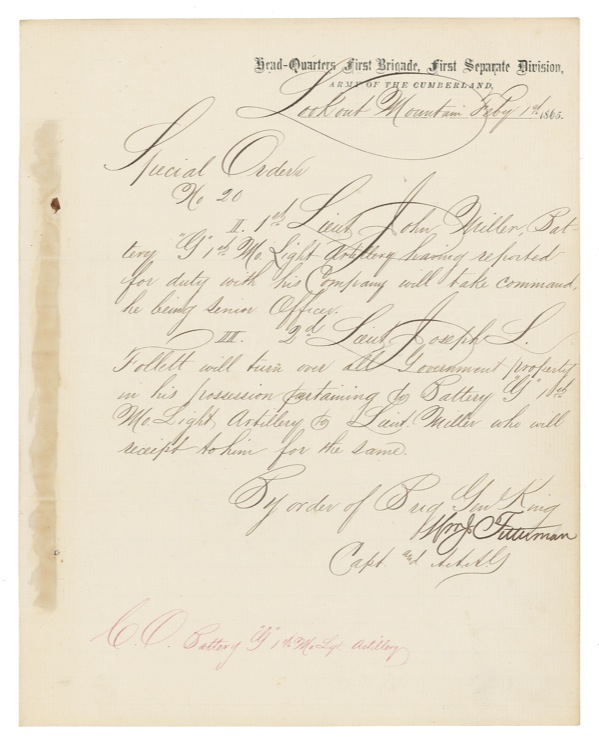 Head-Quarters First Brigade, First Separate Division,
ARMY OF THE CUMBERLAND,
Lookout Mountain Feby 1st 1865.
Special Orders
No 20
II. 1st Lieut John Miller, Bat-
tery "G" 1st Mo. Light Artillery having reported
for duty with his Company will take command,
he being senior Officer.
III. 2d Lieut Joseph L.
Follett will turn over all Government property
in his possession pertaining to Battery "G" 1st
Mo. Light Artillery to Lieut. Miller who will
receipt to him for the same.
By order of Brig Gen King
Wm J
Capt and A.A.A.G
C.O. Battery "G" 1st Mo Lgt Artillery